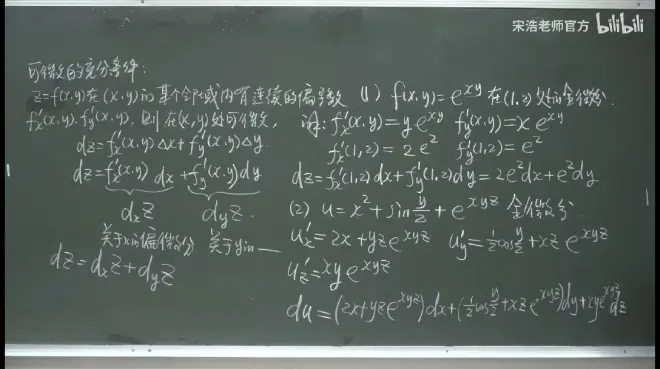 宋浩老师官方 bilibili
可微的充分条件:
z=f(x,y)在(x,y)的某个邻域内有连续的偏导数
f'x(x,y), f'y(x,y), 则在(x,y)处可微,
dz=f'x(x,y)△x+f'y(x,y)△y
dz=f'x(x,y)dx+f'y(x,y)dy
dxz dyz.
关于x的偏微分 关于y的——
dz=dxz+dyz
(1) f(x,y)=e^{xy} 在(1,2)处的全微分.
解: f'x(x,y)=ye^{xy} f'y(x,y)=xe^{xy}
f'x(1,2)=2e² f'y(1,2)=e²
dz=f'x(1,2)dx+f'y(1,2)dy=2e²dx+e²dy
(2) u=x²+sin y/2+e^{xyz} 全微分
u'x=2x+yze^{xyz} u'y=½cos y/2+xze^{xyz}
u'z=xye^{xyz}
du=(2x+yze^{xyz})dx+(½cos y/2+xze^{xyz})dy+xye^{xyz}dz